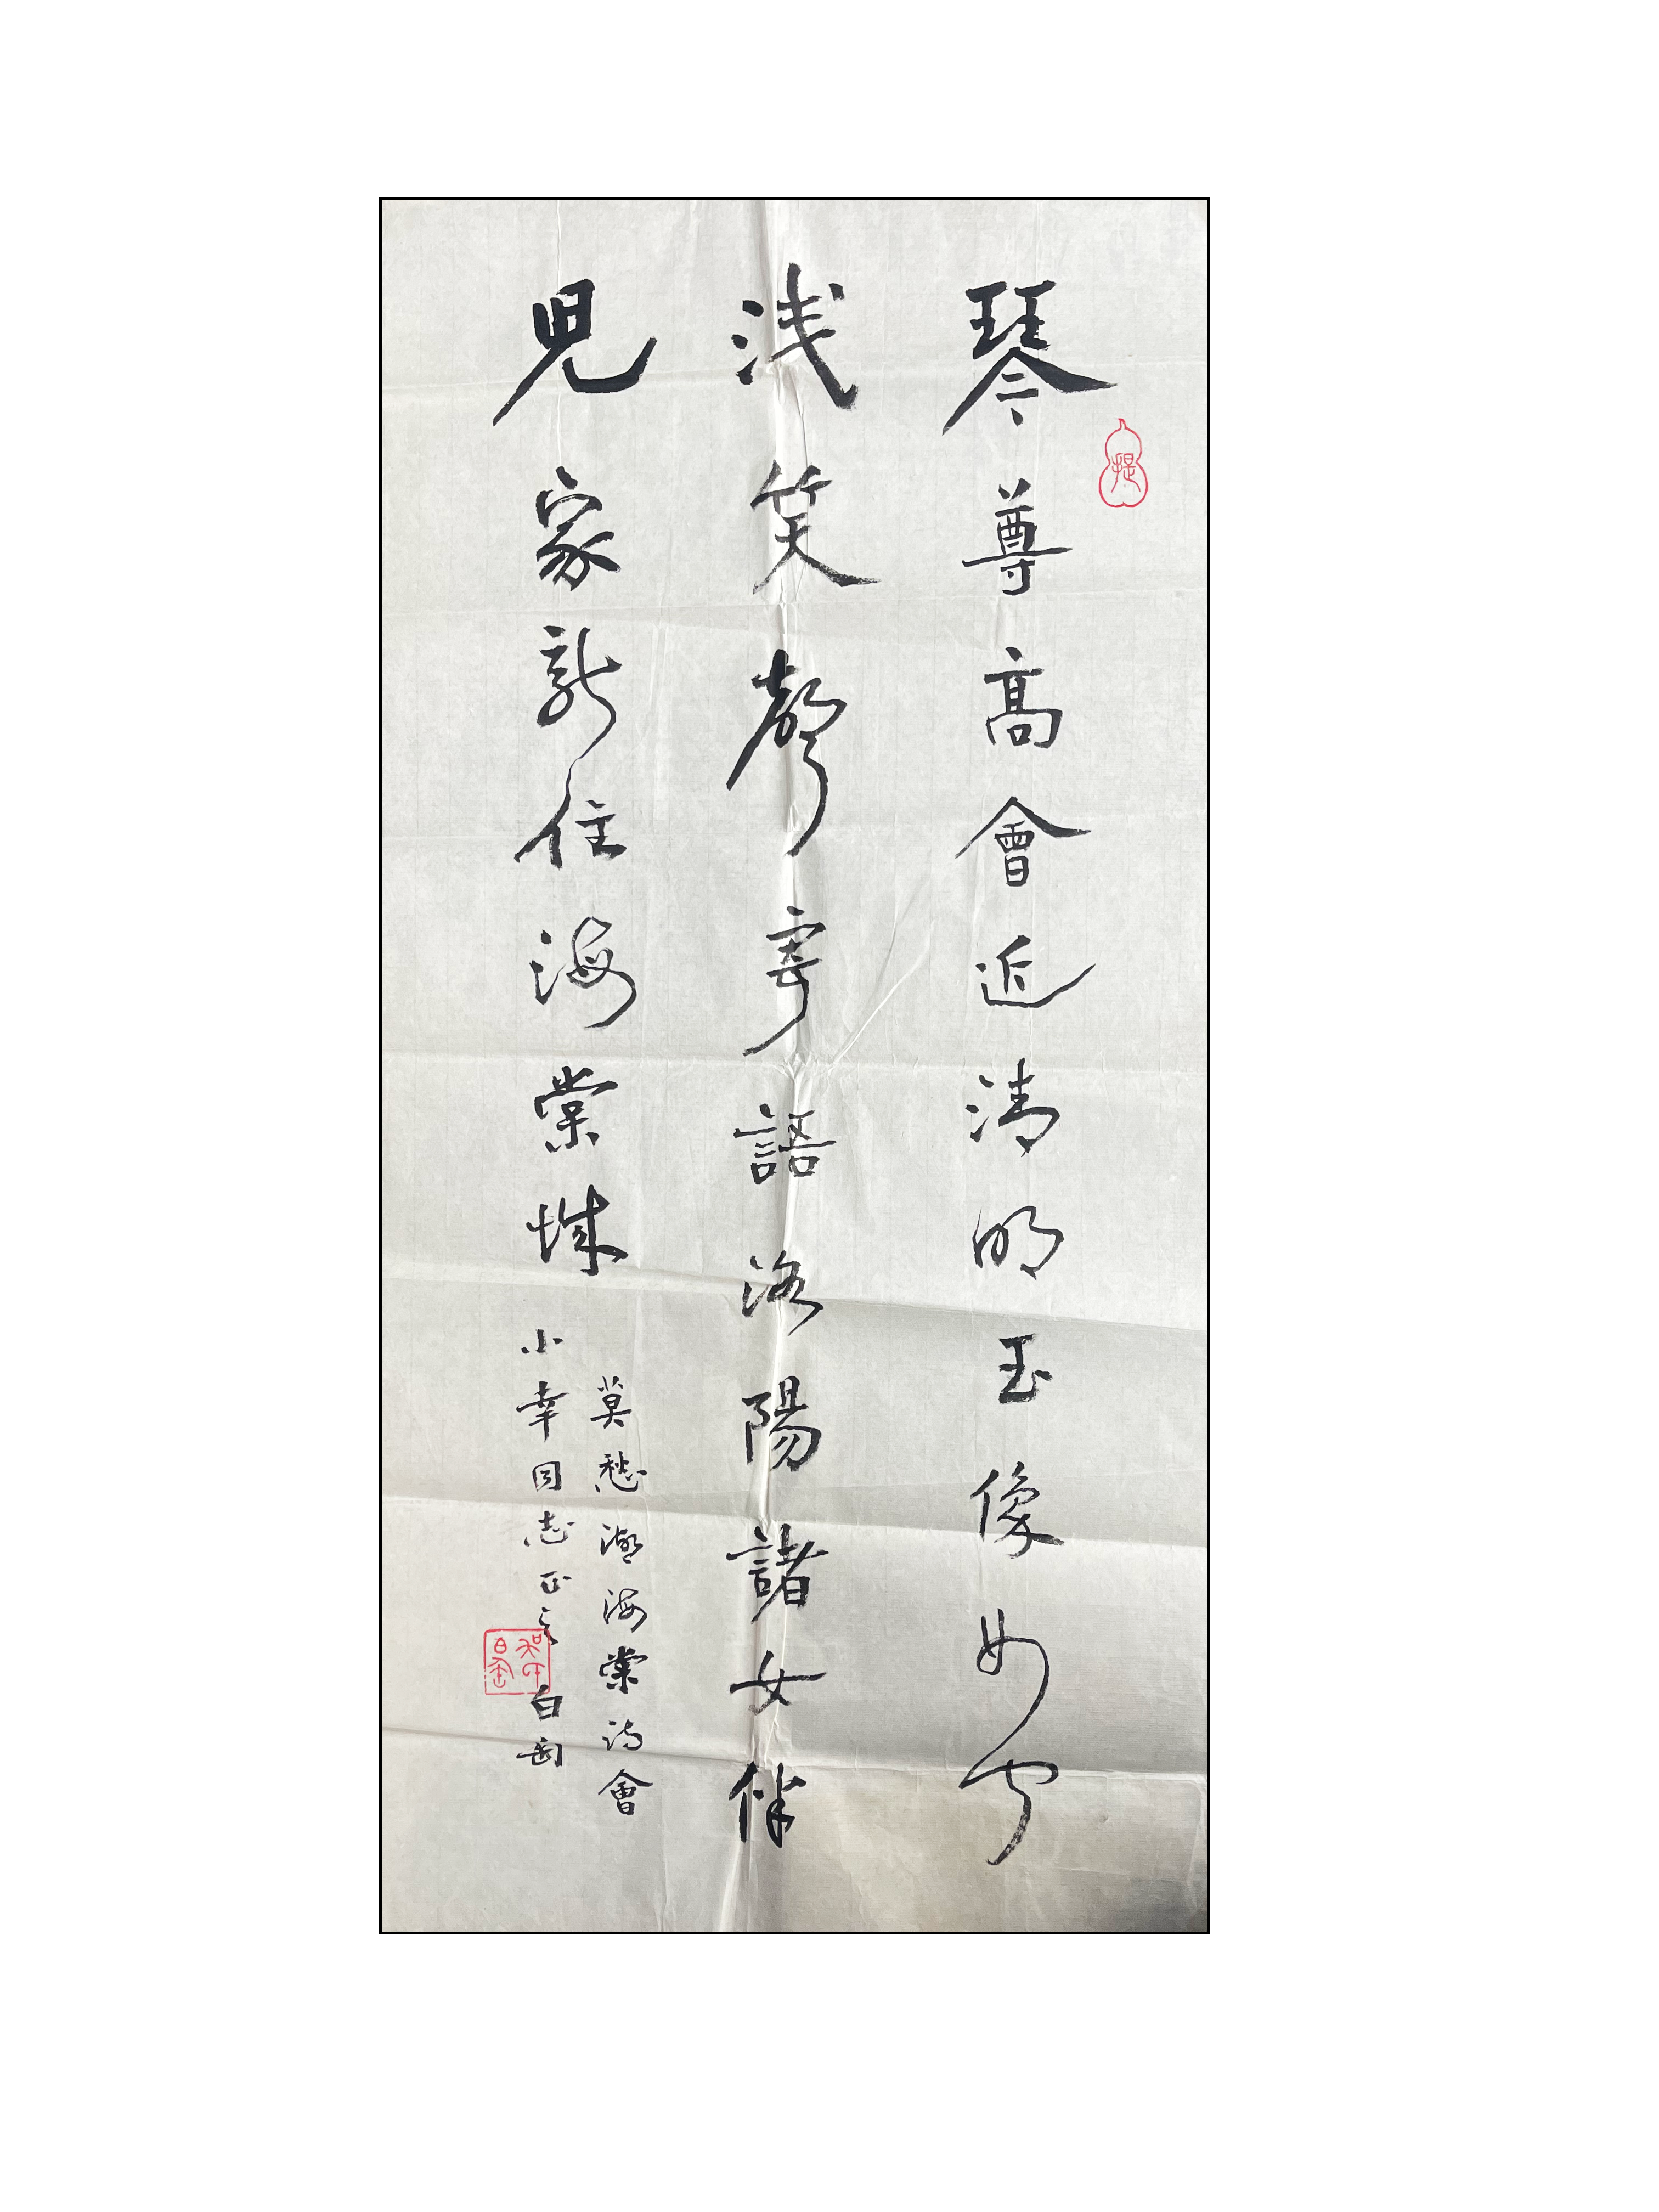 琴尊高會近清明玉像如聞
浅笑聲寄語洛陽諸女伴
兒家新住海棠城
莫愁湖海棠詩會
小幸同志正之 白匋